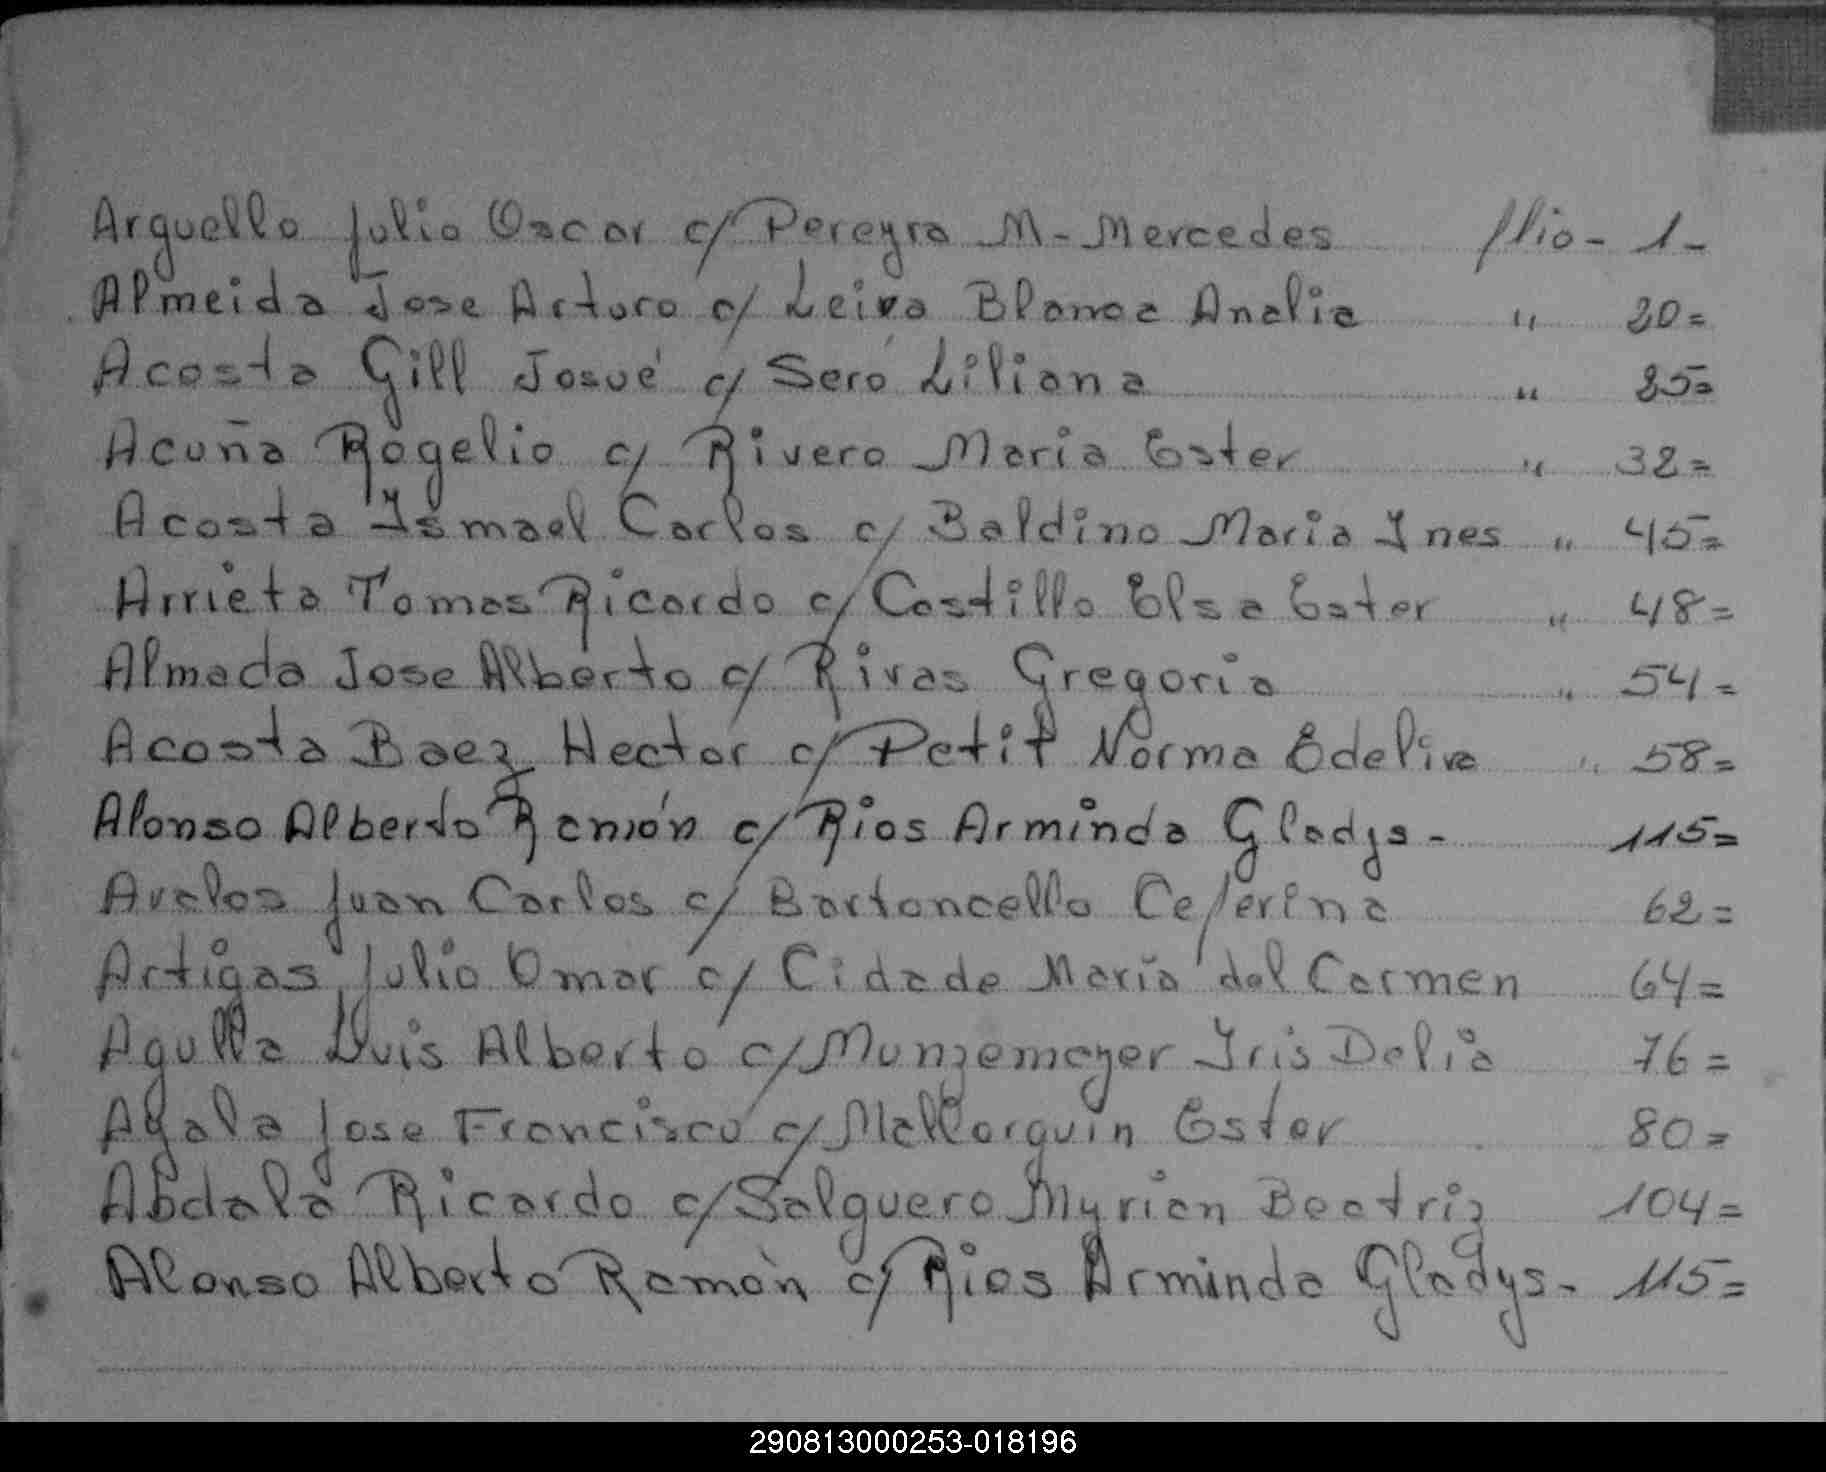 Arguello Julio Oscar c/ Pereyra M- Mercedes flio- 1-
Almeida Jose Arturo c/ Leiva Blanca Analia " 20=
Acosta Gill Josué c/ Seró Liliana " 25=
Acuña Rogelio c/ Rivero Maria Ester " 32=
Acosta Ismael Carlos c/ Baldino Maria Ines " 45=
Arrieta Tomas Ricardo c/ Castillo Elsa Ester " 48=
Almada Jose Alberto c/ Rivas Gregoria " 54=
Acosta Baez Hector c/ Petit Norma Edeliva " 58=
Alonso Alberto Ramón c/ Rios Arminda Gladys- 115=
Avalos Juan Carlos c/ Bartoncello Ceferina 62=
Artigas Julio Omar c/ Cidade Maria del Carmen 64=
Agulla Luis Alberto c/ Munzemayer Iris Delia 76=
Ayala Jose Francisco c/ Mallorquin Ester 80=
Abdala Ricardo c/ Salguero Myrian Beatriz 104=
Alonso Alberto Ramón c/ Rios Arminda Gladys- 115=
290813000253-018196